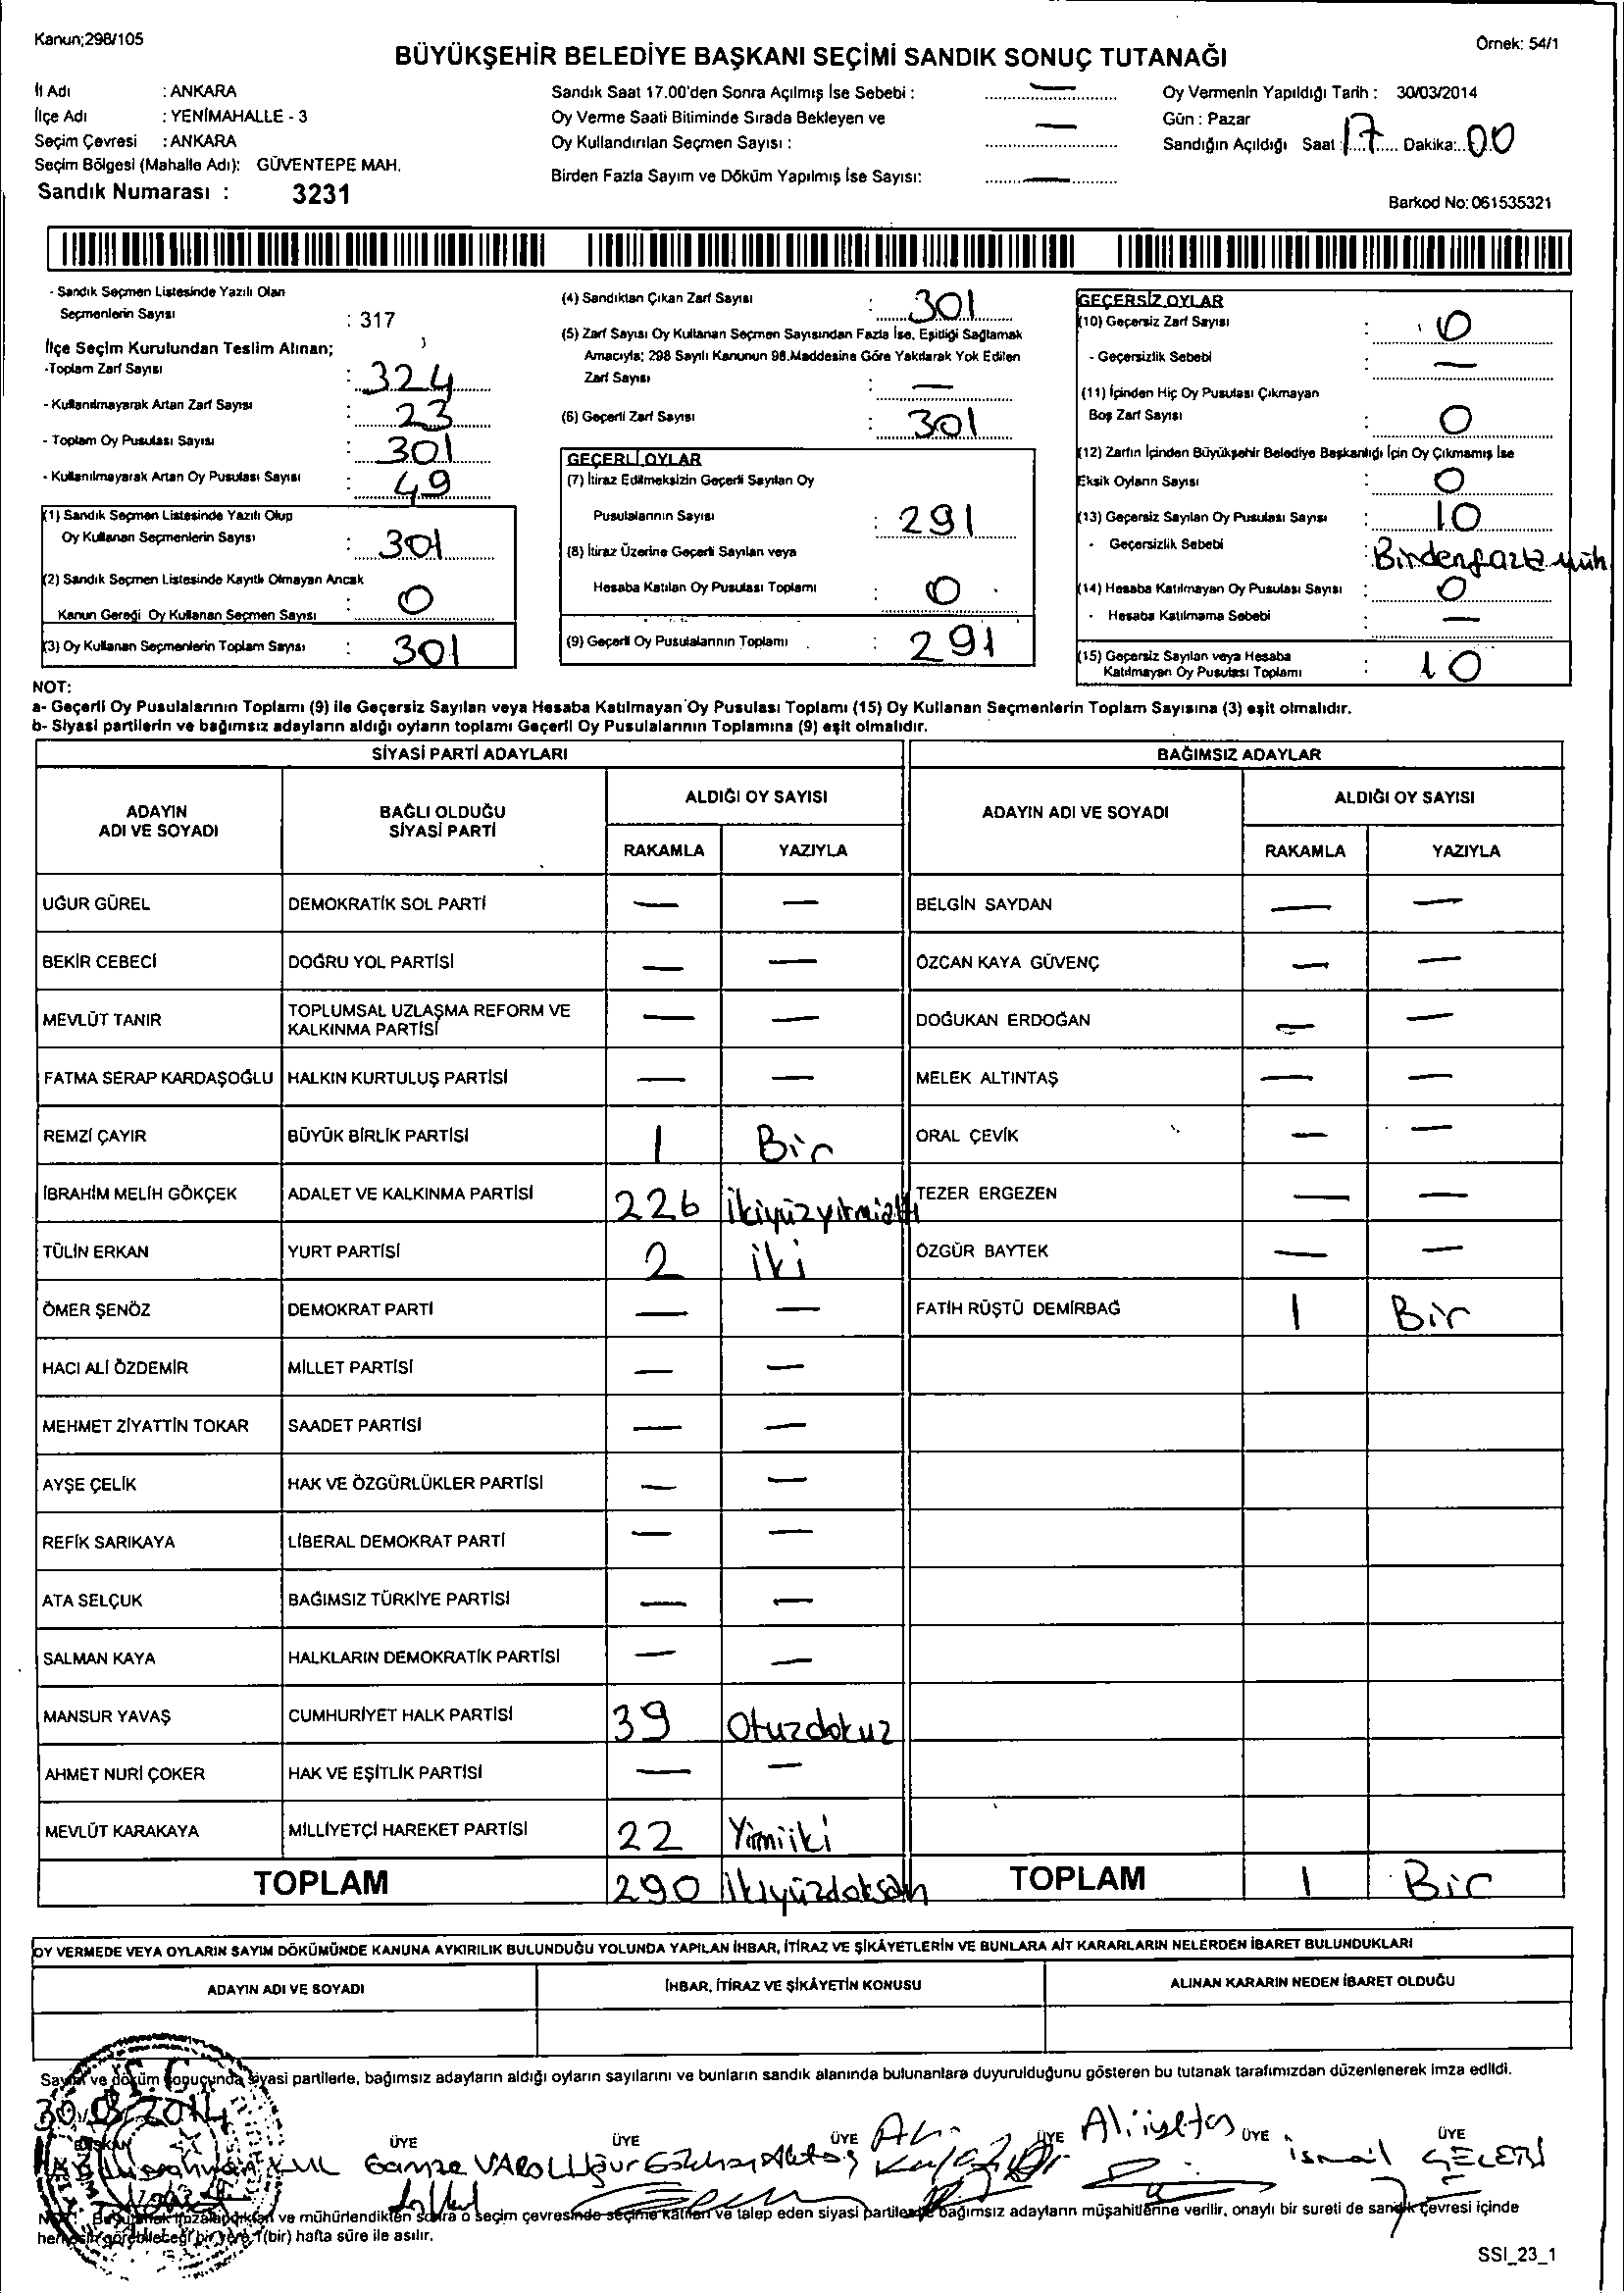 Kanun;298/105
Örnek: 54/1
BÜYÜKŞEHİR BELEDİYE BAŞKANI SEÇİMİ SANDIK SONUÇ TUTANAĞI
İl Adı : ANKARA
İlçe Adı : YENİMAHALLE - 3
Seçim Çevresi : ANKARA
Seçim Bölgesi (Mahalle Adı): GÜVENTEPE MAH.
Sandık Numarası : 3231
Sandık Saat 17.00'den Sonra Açılmış İse Sebebi : —
Oy Verme Saati Bitiminde Sırada Bekleyen ve
Oy Kullandırılan Seçmen Sayısı : —
Birden Fazla Sayım ve Döküm Yapılmış İse Sayısı: —
Oy Vermenin Yapıldığı Tarih : 30/03/2014
Gün : Pazar
Sandığın Açıldığı Saat : 17 Dakika: 00
Barkod No: 061535321
- Sandık Seçmen Listesinde Yazılı Olan
Seçmenlerin Sayısı : 317
İlçe Seçim Kurulundan Teslim Alınan;
-Toplam Zarf Sayısı : 324
- Kullanılmayarak Artan Zarf Sayısı : 23
- Toplam Oy Pusulası Sayısı : 301
- Kullanılmayarak Artan Oy Pusulası Sayısı : 49
(1) Sandık Seçmen Listesinde Yazılı Olup
Oy Kullanan Seçmenlerin Sayısı : 301
(2) Sandık Seçmen Listesinde Kayıtlı Olmayan Ancak
Kanun Gereği Oy Kullanan Seçmen Sayısı : 0
(3) Oy Kullanan Seçmenlerin Toplam Sayısı : 301
(4) Sandıktan Çıkan Zarf Sayısı : 301
(5) Zarf Sayısı Oy Kullanan Seçmen Sayısından Fazla İse, Eşitliği Sağlamak
Amacıyla; 298 Sayılı Kanunun 98.Maddesine Göre Yakılarak Yok Edilen
Zarf Sayısı : —
(6) Geçerli Zarf Sayısı : 301
GEÇERLİ OYLAR
(7) İtiraz Edilmeksizin Geçerli Sayılan Oy
Pusulalarının Sayısı : 291
(8) İtiraz Üzerine Geçerli Sayılan veya
Hesaba Katılan Oy Pusulası Toplamı : 0
(9) Geçerli Oy Pusulalarının Toplamı : 291
GEÇERSİZ OYLAR
(10) Geçersiz Zarf Sayısı : 0
- Geçersizlik Sebebi : —
(11) İçinden Hiç Oy Pusulası Çıkmayan
Boş Zarf Sayısı : 0
(12) Zarfın İçinden Büyükşehir Belediye Başkanlığı İçin Oy Çıkmamış İse
Eksik Oyların Sayısı : 0
(13) Geçersiz Sayılan Oy Pusulası Sayısı : 10
- Geçersizlik Sebebi : Birdenfazla müh
(14) Hesaba Katılmayan Oy Pusulası Sayısı : 0
- Hesaba Katılmama Sebebi : —
(15) Geçersiz Sayılan veya Hesaba
Katılmayan Oy Pusulası Toplamı : 10
NOT:
a- Geçerli Oy Pusulalarının Toplamı (9) ile Geçersiz Sayılan veya Hesaba Katılmayan Oy Pusulası Toplamı (15) Oy Kullanan Seçmenlerin Toplam Sayısına (3) eşit olmalıdır.
b- Siyasi partilerin ve bağımsız adayların aldığı oyların toplamı Geçerli Oy Pusulalarının Toplamına (9) eşit olmalıdır.
SİYASİ PARTİ ADAYLARI BAĞIMSIZ ADAYLAR
ADAYIN ADI VE SOYADI BAĞLI OLDUĞU SİYASİ PARTİ ALDIĞI OY SAYISI ADAYIN ADI VE SOYADI ALDIĞI OY SAYISI
RAKAMLA YAZIYLA RAKAMLA YAZIYLA
UĞUR GÜREL DEMOKRATİK SOL PARTİ — — BELGİN SAYDAN — —
BEKİR CEBECİ DOĞRU YOL PARTİSİ — — ÖZCAN KAYA GÜVENÇ — —
MEVLÜT TANIR TOPLUMSAL UZLAŞMA REFORM VE KALKINMA PARTİSİ — — DOĞUKAN ERDOĞAN — —
FATMA SERAP KARDAŞOĞLU HALKIN KURTULUŞ PARTİSİ — — MELEK ALTINTAŞ — —
REMZİ ÇAYIR BÜYÜK BİRLİK PARTİSİ 1 Bir ORAL ÇEVİK — —
İBRAHİM MELİH GÖKÇEK ADALET VE KALKINMA PARTİSİ 226 ikiyüzyirmialtı TEZER ERGEZEN — —
TÜLİN ERKAN YURT PARTİSİ 2 iki ÖZGÜR BAYTEK — —
ÖMER ŞENÖZ DEMOKRAT PARTİ — — FATİH RÜŞTÜ DEMİRBAĞ 1 Bir
HACI ALİ ÖZDEMİR MİLLET PARTİSİ — —
MEHMET ZİYATTİN TOKAR SAADET PARTİSİ — —
AYŞE ÇELİK HAK VE ÖZGÜRLÜKLER PARTİSİ — —
REFİK SARIKAYA LİBERAL DEMOKRAT PARTİ — —
ATA SELÇUK BAĞIMSIZ TÜRKİYE PARTİSİ — —
SALMAN KAYA HALKLARIN DEMOKRATİK PARTİSİ — —
MANSUR YAVAŞ CUMHURİYET HALK PARTİSİ 39 Otuzdokuz
AHMET NURİ ÇOKER HAK VE EŞİTLİK PARTİSİ — —
MEVLÜT KARAKAYA MİLLİYETÇİ HAREKET PARTİSİ 22 Yirmiiki
TOPLAM 290 ikiyüzdoksan TOPLAM 1 Bir
OY VERMEDE VEYA OYLARIN SAYIM DÖKÜMÜNDE KANUNA AYKIRILIK BULUNDUĞU YOLUNDA YAPILAN İHBAR, İTİRAZ VE ŞİKÂYETLERİN VE BUNLARA AİT KARARLARIN NELERDEN İBARET BULUNDUKLARI
ADAYIN ADI VE SOYADI İHBAR, İTİRAZ VE ŞİKÂYETİN KONUSU ALINAN KARARIN NEDEN İBARET OLDUĞU
Sayım ve döküm sonucunda siyasi partilerle, bağımsız adayların aldığı oyların sayılarını ve bunların sandık alanında bulunanlara duyurulduğunu gösteren bu tutanak tarafımızdan düzenlenerek imza edildi.
T.C.
30.03.2014
BAŞKAN ÜYE ÜYE ÜYE ÜYE ÜYE ÜYE
KUL Gamze VAROL Uğur Gökhan Aktaş Ali Ali ismail
ve mühürlendikten sonra o seçim çevresinde seçime katılan ve talep eden siyasi partilerle bağımsız adayların müşahitlerine verilir, onaylı bir sureti de sandık çevresi içinde
herkesin görebileceği bir yere 1(bir) hafta süre ile asılır.
SSI_23_1